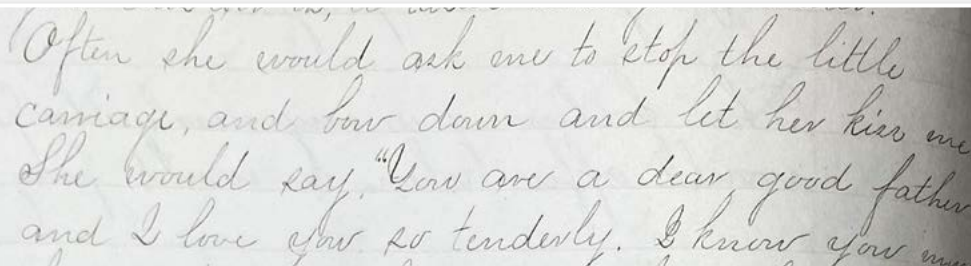 Often she would ask me to stop the little
carriage, and bow down and let her kiss me
She would say, "You are a dear, good father
and I love you so tenderly. I know you